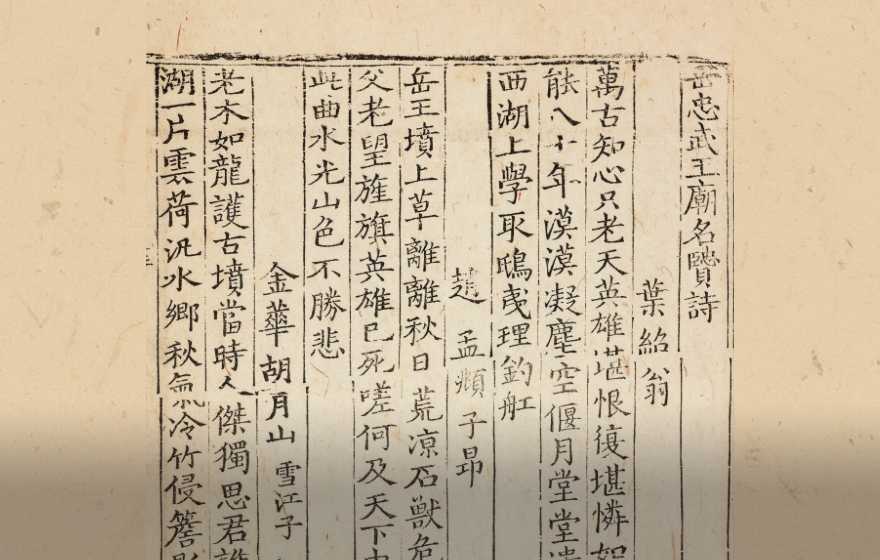 岳忠武王廟名賢詩
葉紹翁
萬古知心只老天英雄堪恨復堪憐如
能八十年漠漠凝塵空偃月堂堂遺
西湖上學取鴟夷理釣舡
趙孟頫子昂
岳王墳上草離離秋日荒凉石獸危
父老望旌旗英雄已死嗟何及天下中
此曲水光山色不勝悲
金華胡月山雪江子
老木如龍護古墳當時人傑獨思君誰
湖一片雲荷汎水鄉秋氣冷竹侵簷影